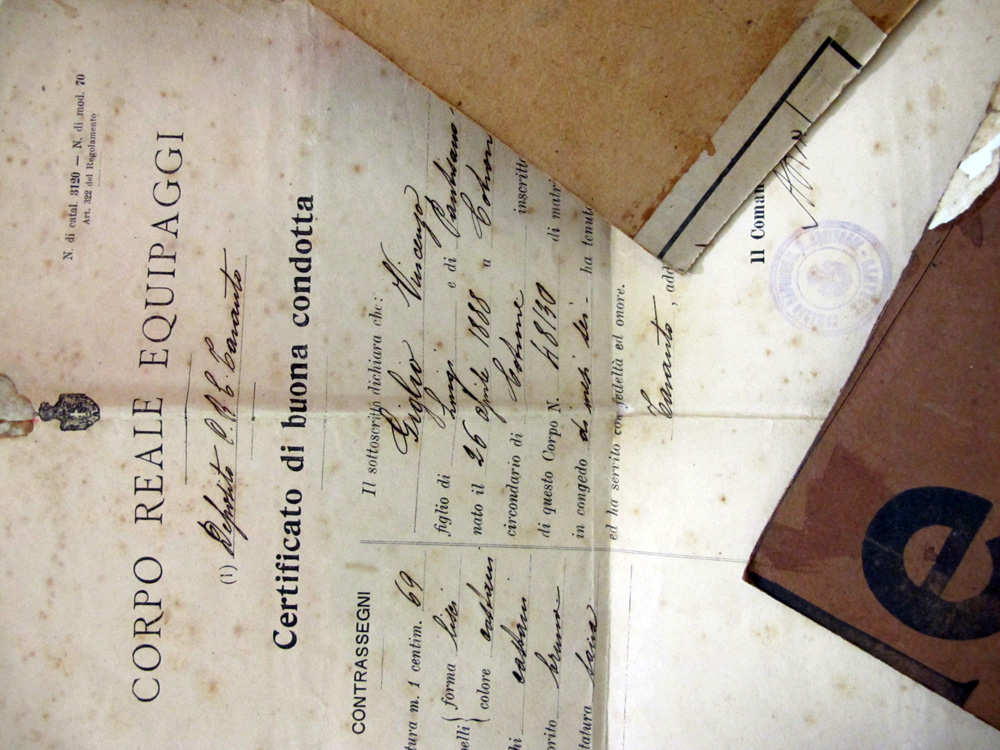 N. di catal. 3120 — N. di mod. 70
Art. 322 del Regolamento
CORPO REALE EQUIPAGGI
(1) Deposito C.R.E. Taranto
Certificato di buona condotta
CONTRASSEGNI
tura m. 1 centim. 69
elli { forma lisci
colore castani
hi castani
orito bruno
tatura
Il sottoscritto dichiara che:
Giglio Vincenzo
figlio di Luigi e di
nato il 26 Aprile 1888 a Cotrone
circondario di Cotrone inscritto
di questo Corpo N. 48130 di matri
in congedo ha tenuto
ed ha servito con fedeltà ed onore.
Taranto, add
Il Coman
e